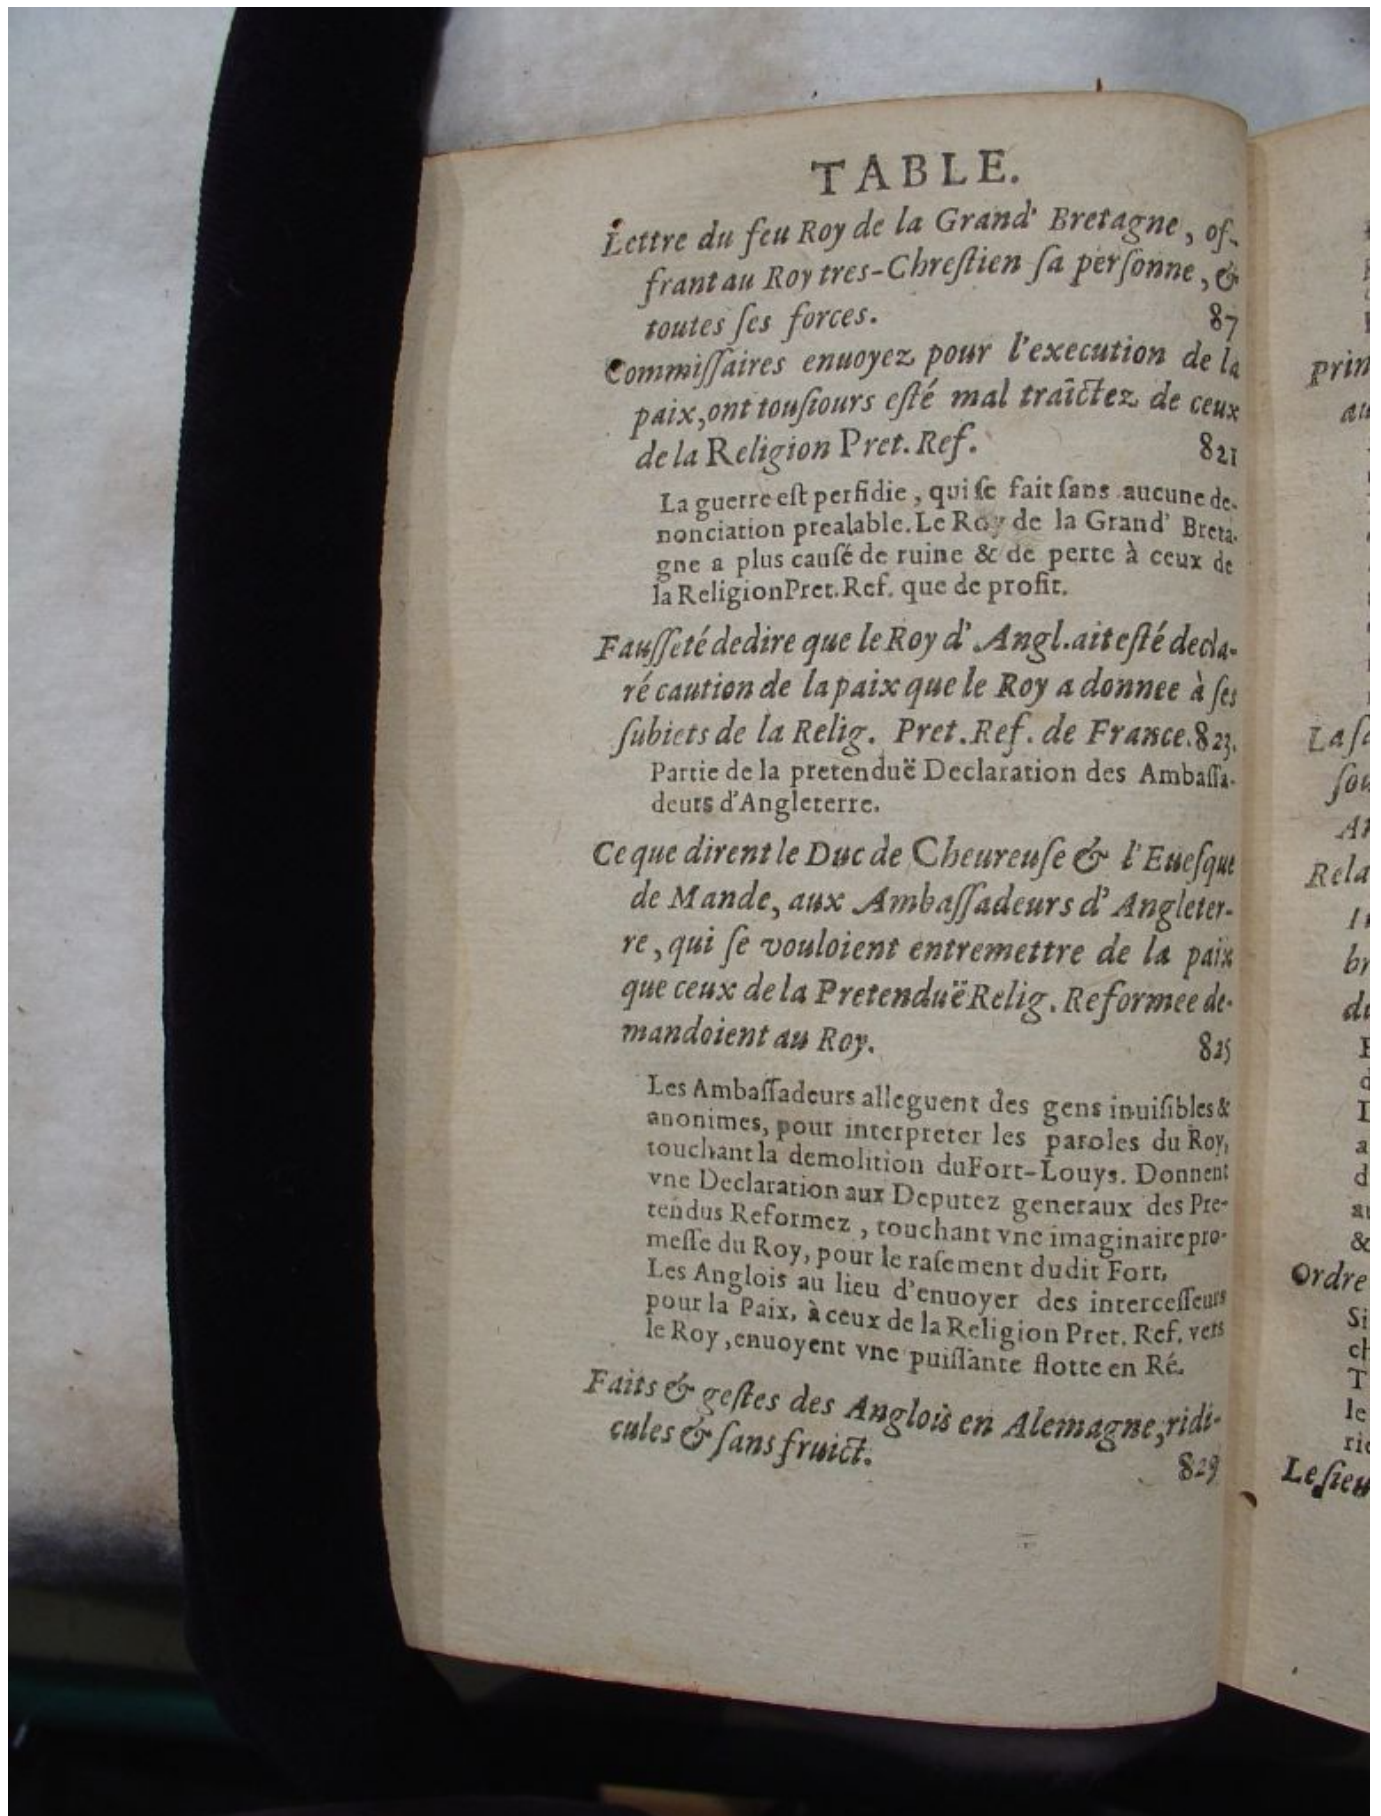 TABLE.
Lettre du feu Roy de la Grand' Bretagne, of-
frant au Roy tres-Chreſtien ſa perſonne, &
toutes ſes forces. 87
Commiſſaires enuoyez pour l'execution de la
paix, ont touſiours eſté mal traîctez de ceux
de la Religion Pret. Ref. 821
La guerre eſt perfidie, qui ſe fait ſans aucune de-
nonciation prealable. Le Roy de la Grand' Breta-
gne a plus cauſé de ruine & de perte à ceux de
la Religion Pret. Ref. que de profit.
Fauſſeté de dire que le Roy d'Angl. ait eſté decla-
ré caution de la paix que le Roy a donnee à ſes
ſubiets de la Relig. Pret. Ref. de France. 823.
Partie de la pretenduë Declaration des Ambaſſa-
deurs d'Angleterre.
Ce que dirent le Duc de Cheureuſe & l'Eueſque
de Mande, aux Ambaſſadeurs d'Angleter-
re, qui ſe vouloient entremettre de la paix
que ceux de la Pretenduë Relig. Reformee de-
mandoient au Roy. 825
Les Ambaſſadeurs alleguent des gens inuiſibles &
anonimes, pour interpreter les paroles du Roy,
touchant la demolition du Fort-Louys. Donnent
vne Declaration aux Deputez generaux des Pre-
tendus Reformez, touchant vne imaginaire pro-
meſſe du Roy, pour le raſement dudit Fort,
Les Anglois au lieu d'enuoyer des interceſſeurs
pour la Paix, à ceux de la Religion Pret. Ref. vers
le Roy, enuoyent vne puiſſante flotte en Ré.
Faits & geſtes des Anglois en Alemagne, ridi-
cules & ſans fruict. 829
prin
au
La ſa
ſou
An
Rela
br
du
&
Ordre
Si
ch
T
le
ric
Le ſieu